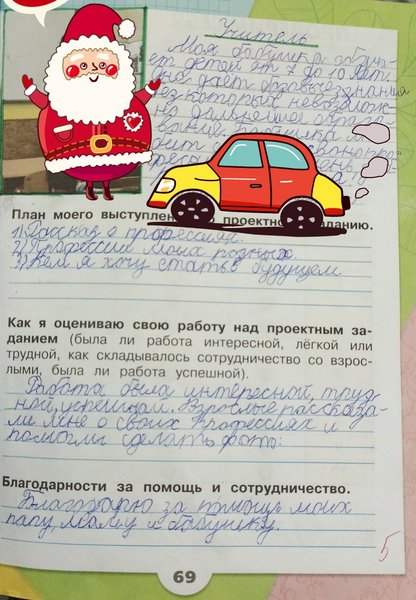 Учитель
Моя бабушка обуча-
ет детей от 7 до 10 лет.
даёт базовые знания
без которых невозмож-
но дальнейшее образо-
вание.
План моего выступлен проектно данию.
1) Рассказ о профессиях.
2) Профессии моих родных.
3) Кем я хочу стать в будущем
Как я оцениваю свою работу над проектным за-
данием (была ли работа интересной, лёгкой или
трудной, как складывалось сотрудничество со взрос-
лыми, была ли работа успешной).
Работа была интересной, труд-
ной, успешной. Взрослые рассказа-
ли мне о своих профессиях и
помогли сделать фото.
Благодарности за помощь и сотрудничество.
Благодарю за помощь моих
папу, маму и бабушку.
5
69